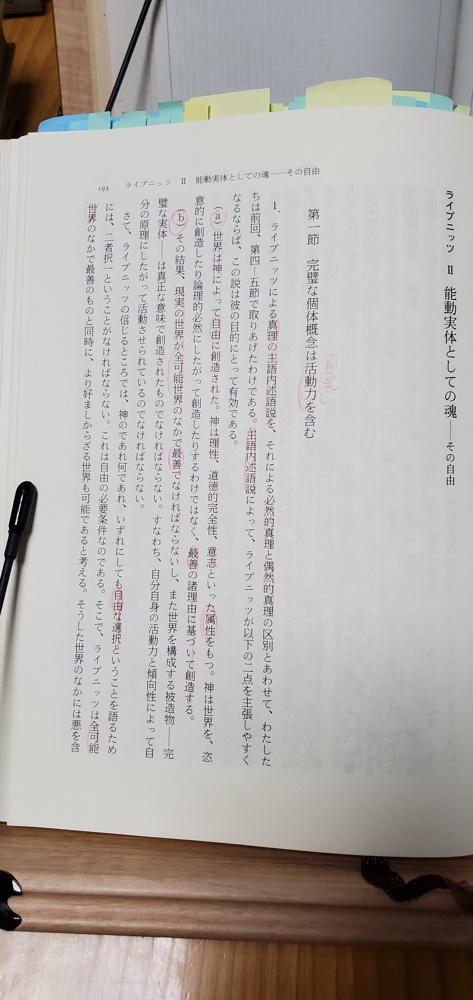 ライプニッツ Ⅱ 能動実体としての魂——その自由
第一節 完璧な個体概念は活動力を含む
1. ライプニッツによる真理の主語内述語説を、それによる必然的真理と偶然的真理の区別とあわせて、わたした
ちは前回、第四—五節で取りあげたわけである。主語内述語説によって、ライプニッツが以下の二点を主張しやすく
なるならば、この説は彼の目的にとって有効である。
(a) 世界は神によって自由に創造された。神は理性、道徳的完全性、意志といった属性をもつ。神は世界を、恣
意的に創造したり論理的必然にしたがって創造したりするわけではなく、最善の諸理由に基づいて創造する。
(b) その結果、現実の世界が全可能世界のなかで最善でなければならないし、また世界を構成する被造物——完
璧な実体 は真正な意味で創造されたものでなければならない。すなわち、自分自身の活動力と傾向性によって自
分の原理にしたがって活動させられているのでなければならない。
さて、ライプニッツの信じるところでは、神のであれ何であれ、いずれにしても自由な選択ということを語るため
には、二者択一ということがなければならない。これは自由の必要条件なのである。そこで、ライプニッツは全可能
世界のなかで最善のものと同時に、より好ましからざる世界も可能であると考える。そうした世界のなかには悪を含
193 ライプニッツ Ⅱ 能動実体としての魂——その自由